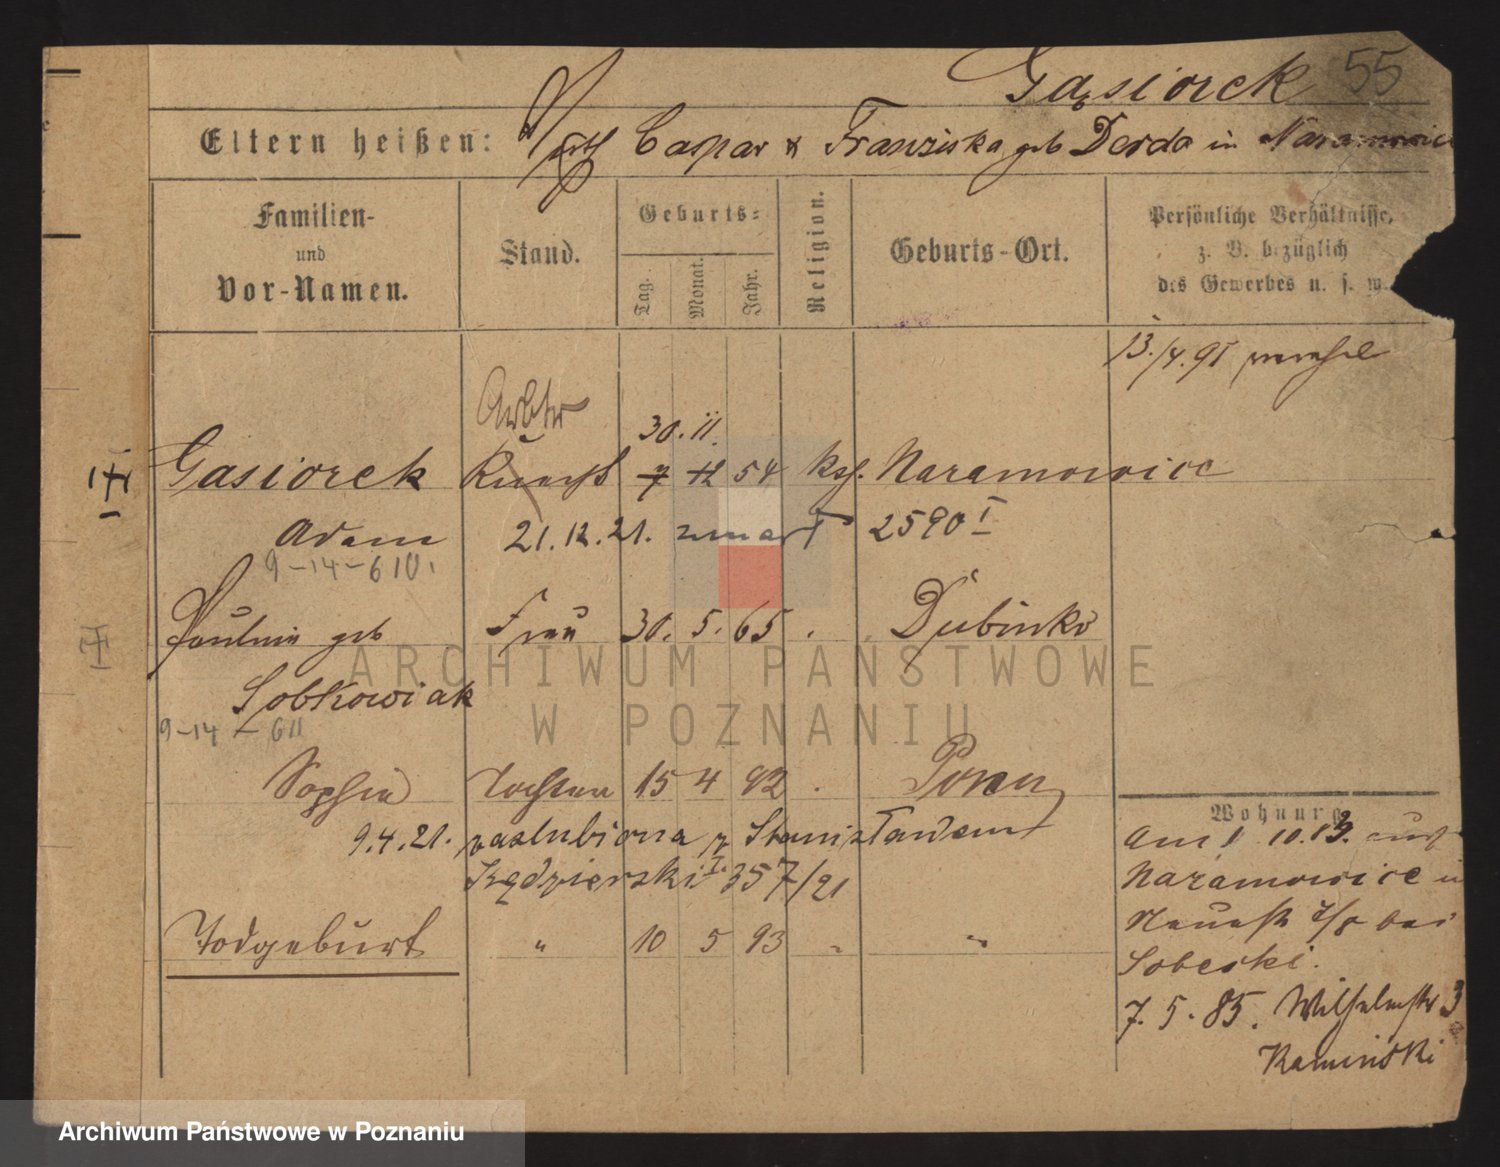 Gąsiorek 55
Eltern heißen: Caspar & Franziska geb Derda in Naramowice
Familien- und Vor-Namen.
Stand.
Geburts-
Tag. Monat. Jahr.
Religion.
Geburts-Ort.
Persönliche Verhältnisse,
z. B. bezüglich
des Gewerbes u. s. w.
13./4.91
Arbtr
30. 11.
Gasiorek Knecht 7 12 54 Kath. Naramowice
Adam 21.12.21. zmarł 2590 I
9-14-610.
Paulina geb Frau 30. 5. 65 . Dubinko
Sobkowiak
9-14-611
Sophia Tochter 15 4 92 . Posen
9.4.21. zaślubiona z Stanisławem
Kędzierski I. 357/21
Todgeburt " 10 5 93 " "
Wohnung
Am 1 10. 83. aus
Naramowice in
7/8 bei
Sobeski.
7. 5. 85. Wilhelmstr 3
Kaminski
ARCHIWUM PAŃSTWOWE
W POZNANIU
Archiwum Państwowe w Poznaniu